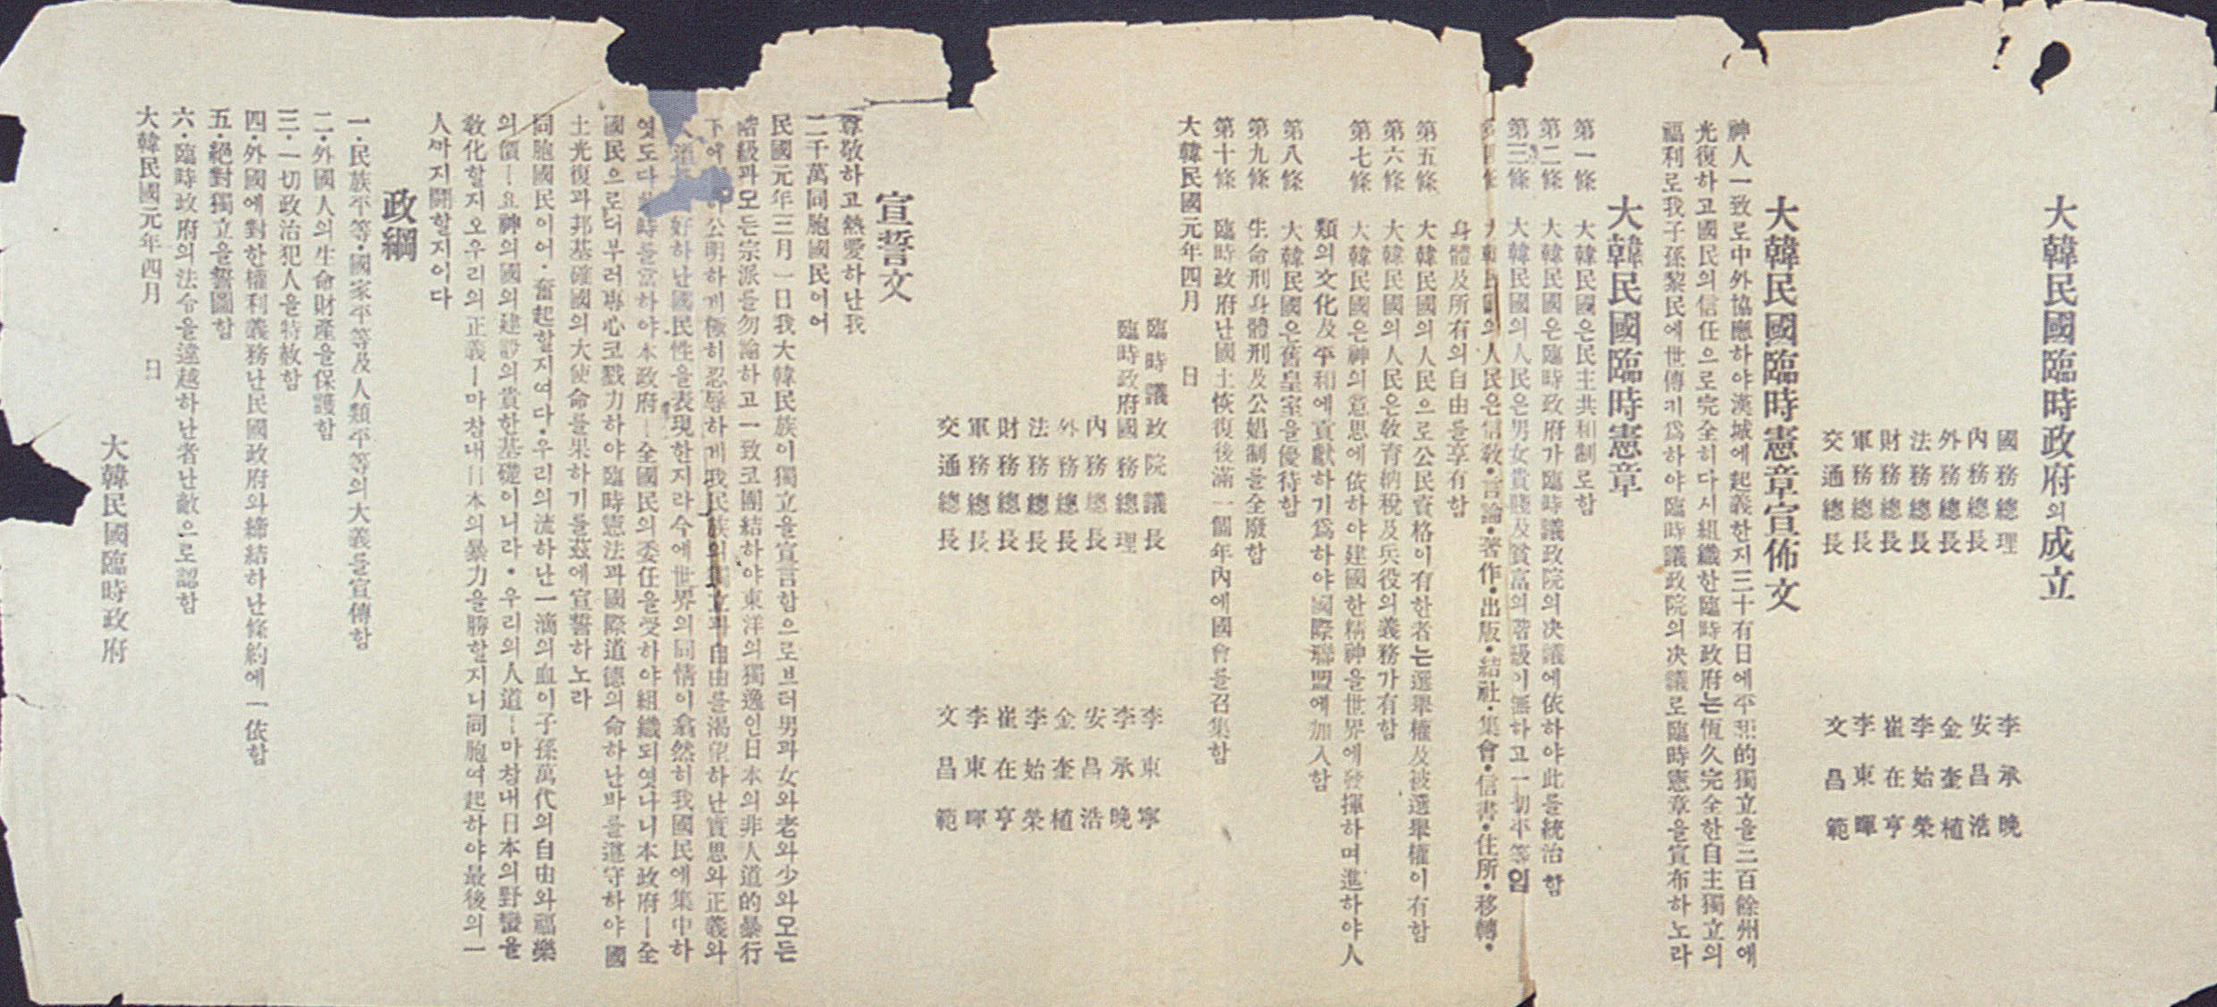 大韓民國臨時政府의成立
國務總理 李承晩
內務總長 安昌浩
外務總長 金奎植
法務總長 李始榮
財務總長 崔在亨
軍務總長 李東暉
交通總長 文昌範
大韓民國臨時憲章宣佈文
神人一致로中外協應하야漢城에起義한지三十有日에平和的獨立을三百餘州에
光復하고國民의信任으로完全히다시組織한臨時政府는恆久完全한自主獨立의
福利로我子孫黎民에世傳키爲하야臨時議政院의決議로臨時憲章을宣布하노라
大韓民國臨時憲章
第一條 大韓民國은民主共和制로함
第二條 大韓民國은臨時政府가臨時議政院의決議에依하야此를統治함
第三條 大韓民國의人民은男女貴賤及貧富의階級이無하고一切平等임
第四條 大韓民國의人民은信敎·言論·著作·出版·結社·集會·信書·住所·移轉·
身體及所有의自由를享有함
第五條 大韓民國의人民으로公民資格이有한者는選擧權及被選擧權이有함
第六條 大韓民國의人民은敎育納稅及兵役의義務가有함
第七條 大韓民國은神의意思에依하야建國한精神을世界에發揮하며進하야人
類의文化及平和에貢獻하기爲하야國際聯盟에加入함
第八條 大韓民國은舊皇室을優待함
第九條 生命刑身體刑及公娼制를全廢함
第十條 臨時政府난國土恢復後滿一個年內에國會를召集함
大韓民國元年四月 日
臨時議政院議長 李東寧
臨時政府國務總理 李承晩
內務總長 安昌浩
外務總長 金奎植
法務總長 李始榮
財務總長 崔在亨
軍務總長 李東暉
交通總長 文昌範
宣誓文
尊敬하고熱愛하난我
二千萬同胞國民어어
民國元年三月一日我大韓民族이獨立을宣言함으로브터男과女와老와少와모든
階級과모든宗派를勿論하고一致코團結하야東洋의獨逸인日本의非人道的暴行
下에 公明하게極히忍辱하게我民族의獨立과自由를渴望하난實思와正義와
好하난國民性을表現한지라今에世界의同情이翕然히我國民에集中하
엿도다 時를當하야本政府ㅣ全國民의委任을受하야組織되엿나니本政府ㅣ全
國民으로더부러專心코戮力하야臨時憲法과國際道德의命하난바를遵守하야國
土光復과邦基確國의大使命을果하기를玆에宣誓하노라
同胞國民이어·奮起할지여다·우리의流하난一滴의血이子孫萬代의自由와福樂
의價ㅣ요神의國의建設의貴한基礎이니라·우리의人道ㅣ마참내日本의野蠻을
敎化할지오우리의正義ㅣ마참내日本의暴力을勝할지니同胞여起하야最後의一
人까지鬪할지이다
政綱
一·民族平等·國家平等及人類平等의大義를宣傳함
二·外國人의生命財產을保護함
三·一切政治犯人을特赦함
四·外國에對한權利義務난民國政府와締結하난條約에一依함
五·絕對獨立을誓圖함
六·臨時政府의法令을違越하난者난敵으로認함
大韓民國元年四月 日
大韓民國臨時政府